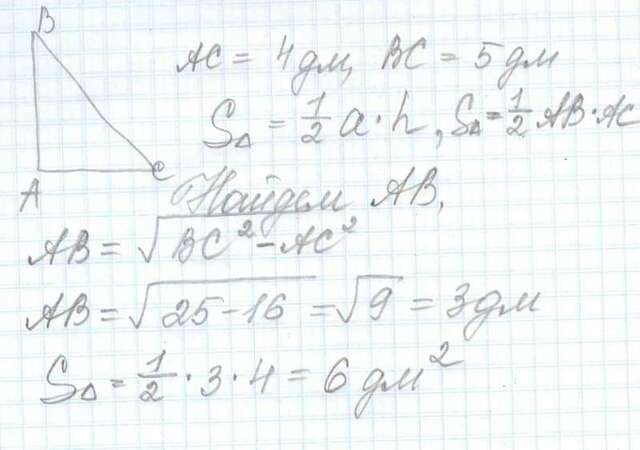 B
AC = 4 дм, BC = 5 дм
S△ = 1/2 a · h, S△ = 1/2 AB · AC
A C
Найдем AB,
AB = √(BC² - AC²)
AB = √(25 - 16) = √9 = 3 дм
S△ = 1/2 · 3 · 4 = 6 дм²